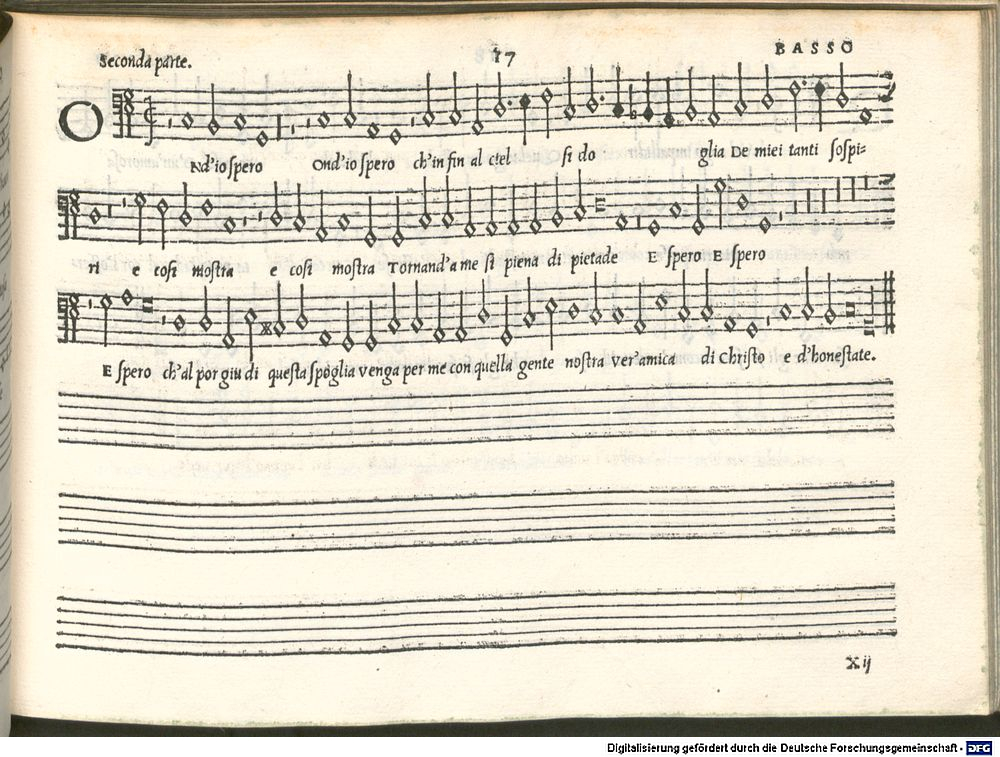 Seconda parte. 17 BASSO
O Nd'io spero Ond'io spero ch'in fin al ciel si do glia De miei tanti sospi=
ri e cosi mostra e cosi mostra Tornand'a me si piena di pietade E spero E spero
E spero ch'al por giu di questa spoglia venga per me con quella gente nostra ver'amica di Christo e d'honestate.
Xij
Digitalisierung gefördert durch die Deutsche Forschungsgemeinschaft - DFG